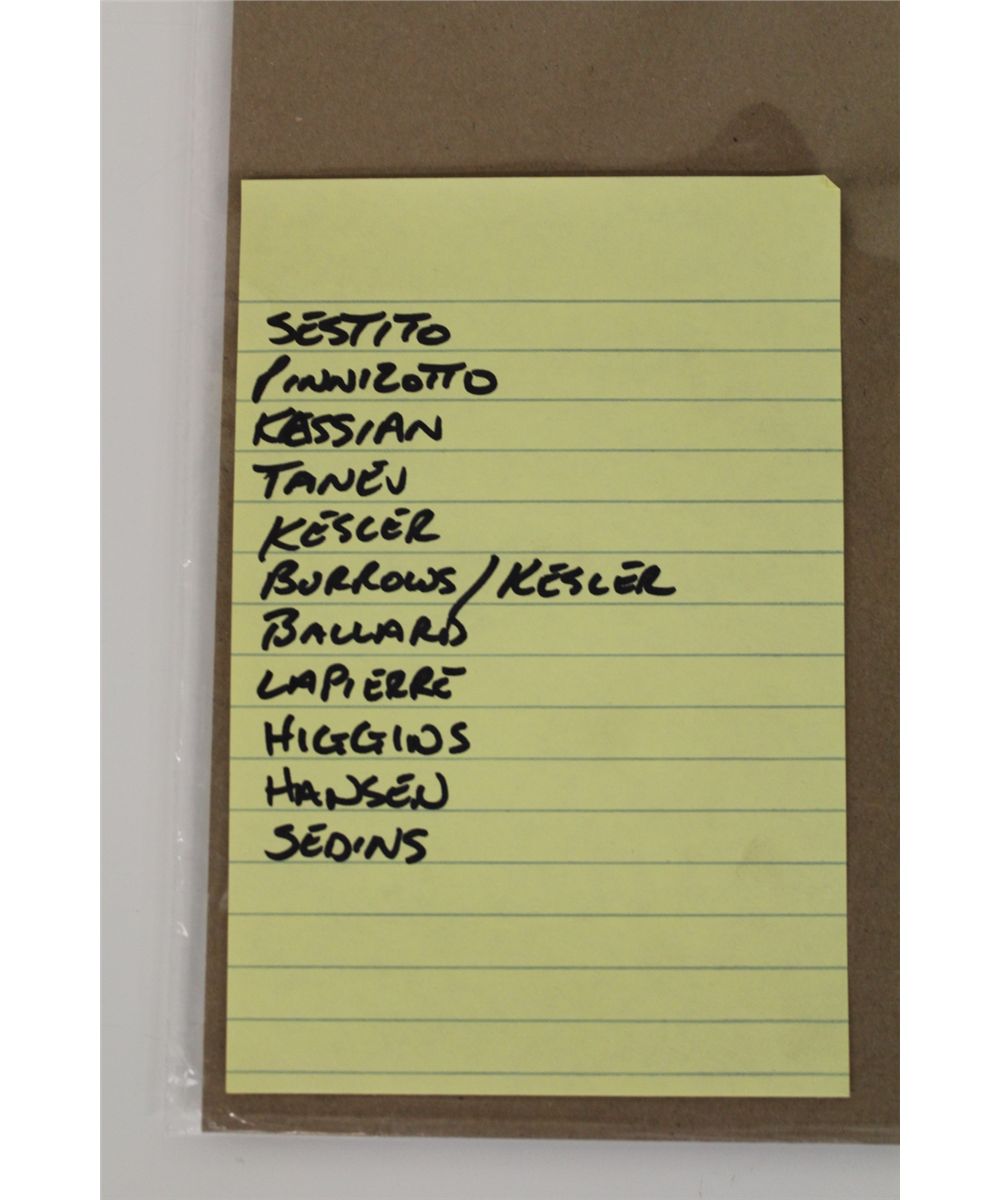 SESTITO
PINNIZOTTO
KASSIAN
TANEV
KESLER
BURROWS/KESLER
BALLARD
LAPIERRE
HIGGINS
HANSEN
SEDINS